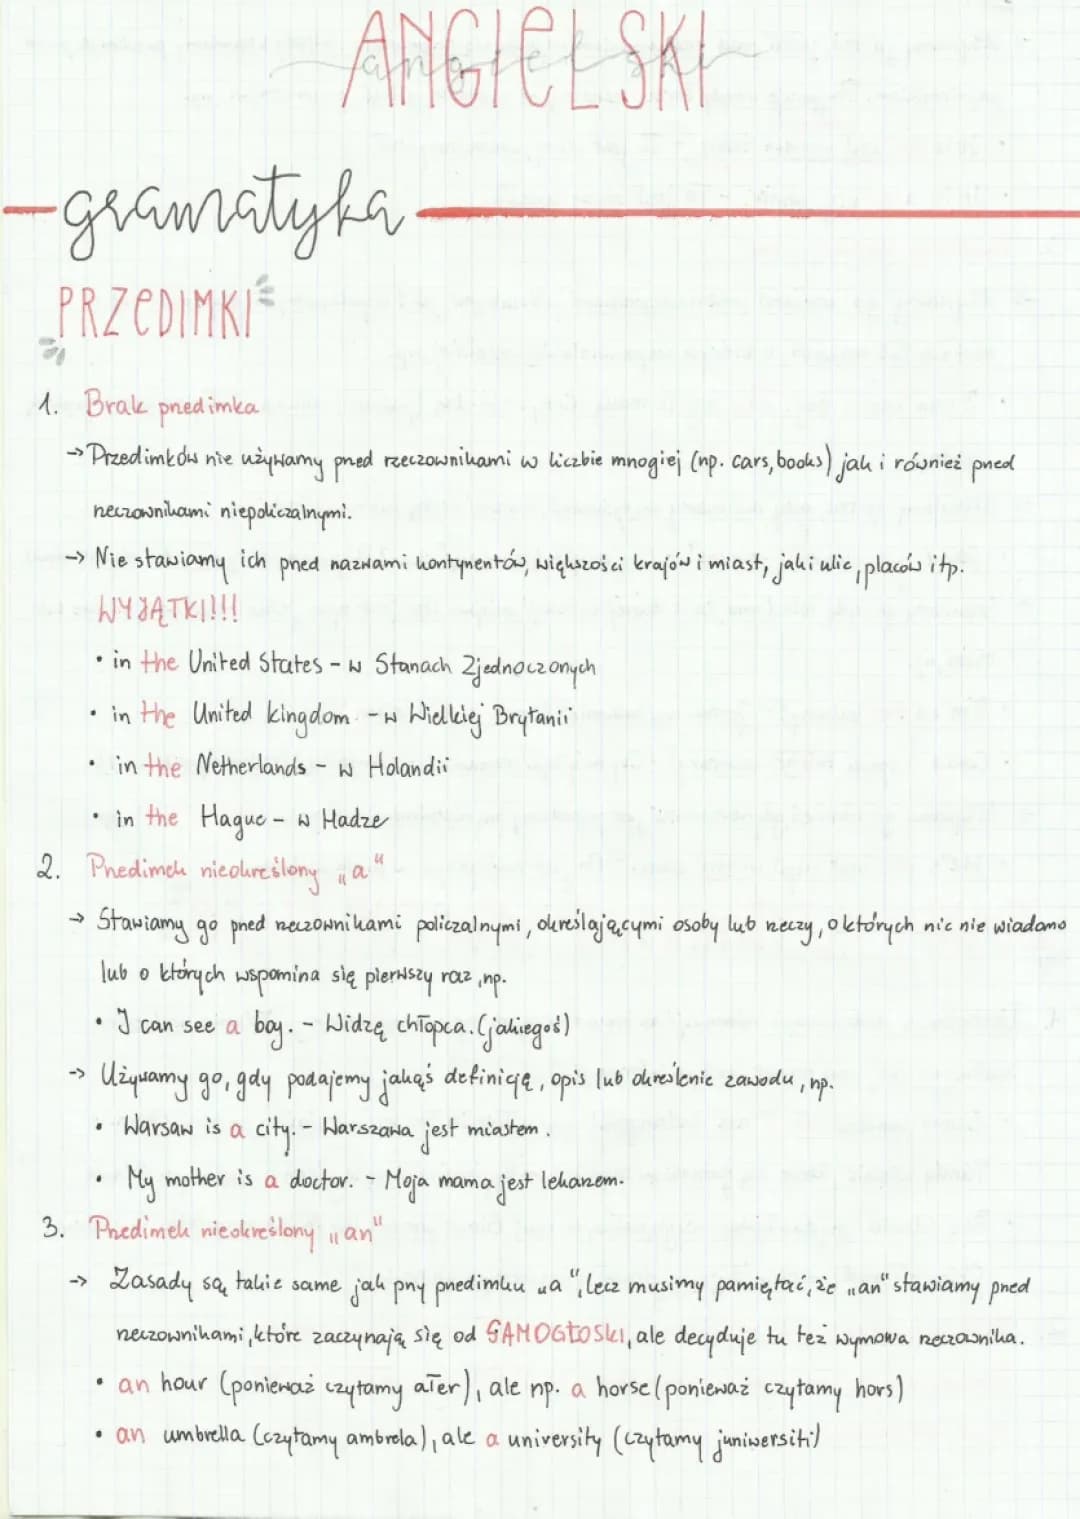 ANGIELSKI
angielski
gramatyka
PRZEDIMKI
1. Brak przedimka
→ Przedimków nie używamy przed rzeczownikami w liczbie mnogiej (np. cars, books) jak i również przed
rzeczownikami niepoliczalnymi.
→ Nie stawiamy ich przed nazwami kontynentów, większości krajów i miast, jak i ulic, placów itp.
WYJĄTKI!!!
• in the United States - w Stanach Zjednoczonych
• in the United kingdom - w Wielkiej Brytanii
• in the Netherlands - w Holandii
• in the Hague - w Hadze
2. Przedimek nieokreślony „a“
→ Stawiamy go przed rzeczownikami policzalnymi, określającymi osoby lub rzeczy, o których nic nie wiadomo
lub o których wspomina się pierwszy raz, np.
• I can see a boy. - Widzę chłopca. (jakiegoś)
→ Używamy go, gdy podajemy jakąś definicję, opis lub określenie zawodu, np.
• Warsaw is a city. - Warszawa jest miastem.
• My mother is a doctor. - Moja mama jest lekarzem.
3. Przedimek nieokreślony „an“
→ Zasady są takie same jak przy przedimku „a“, lecz musimy pamiętać, że „an“ stawiamy przed
rzeczownikami, które zaczynają się od SAMOGŁOSKI, ale decyduje tu też wymowa rzeczownika.
• an hour (ponieważ czytamy ałer), ale np. a horse (ponieważ czytamy hors)
• an umbrella (czytamy ambrela), ale a university (czytamy juniwersiti)